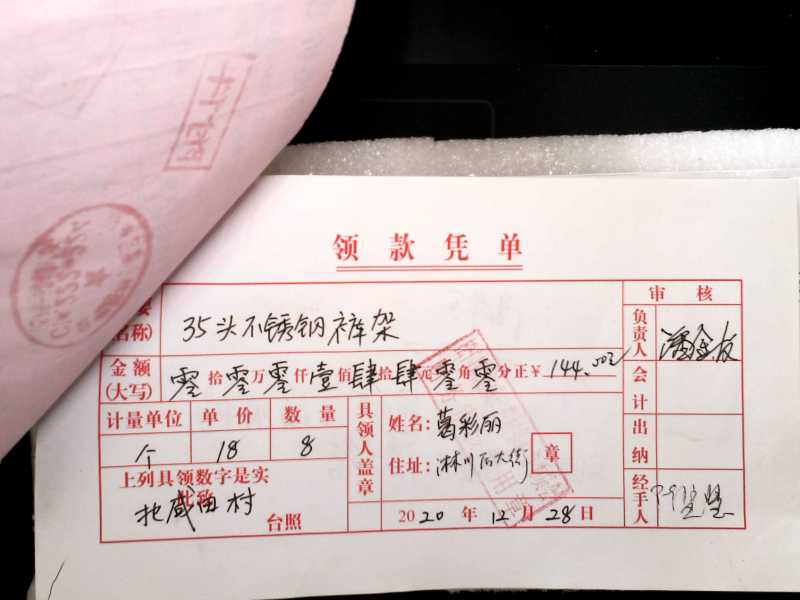 领款凭单
审核
名称)
35头不锈钢裤架
负责人
金额
(大写)
零拾零万零仟壹佰肆拾肆元零角零分正¥144.00元
会计
计量单位 单价 数量
个 18 8
具领人盖章
姓名:葛彩丽
住址:淋川后大街
章
出纳
上列具领数字是实
此致
村
台照
2020年12月28日
经手人